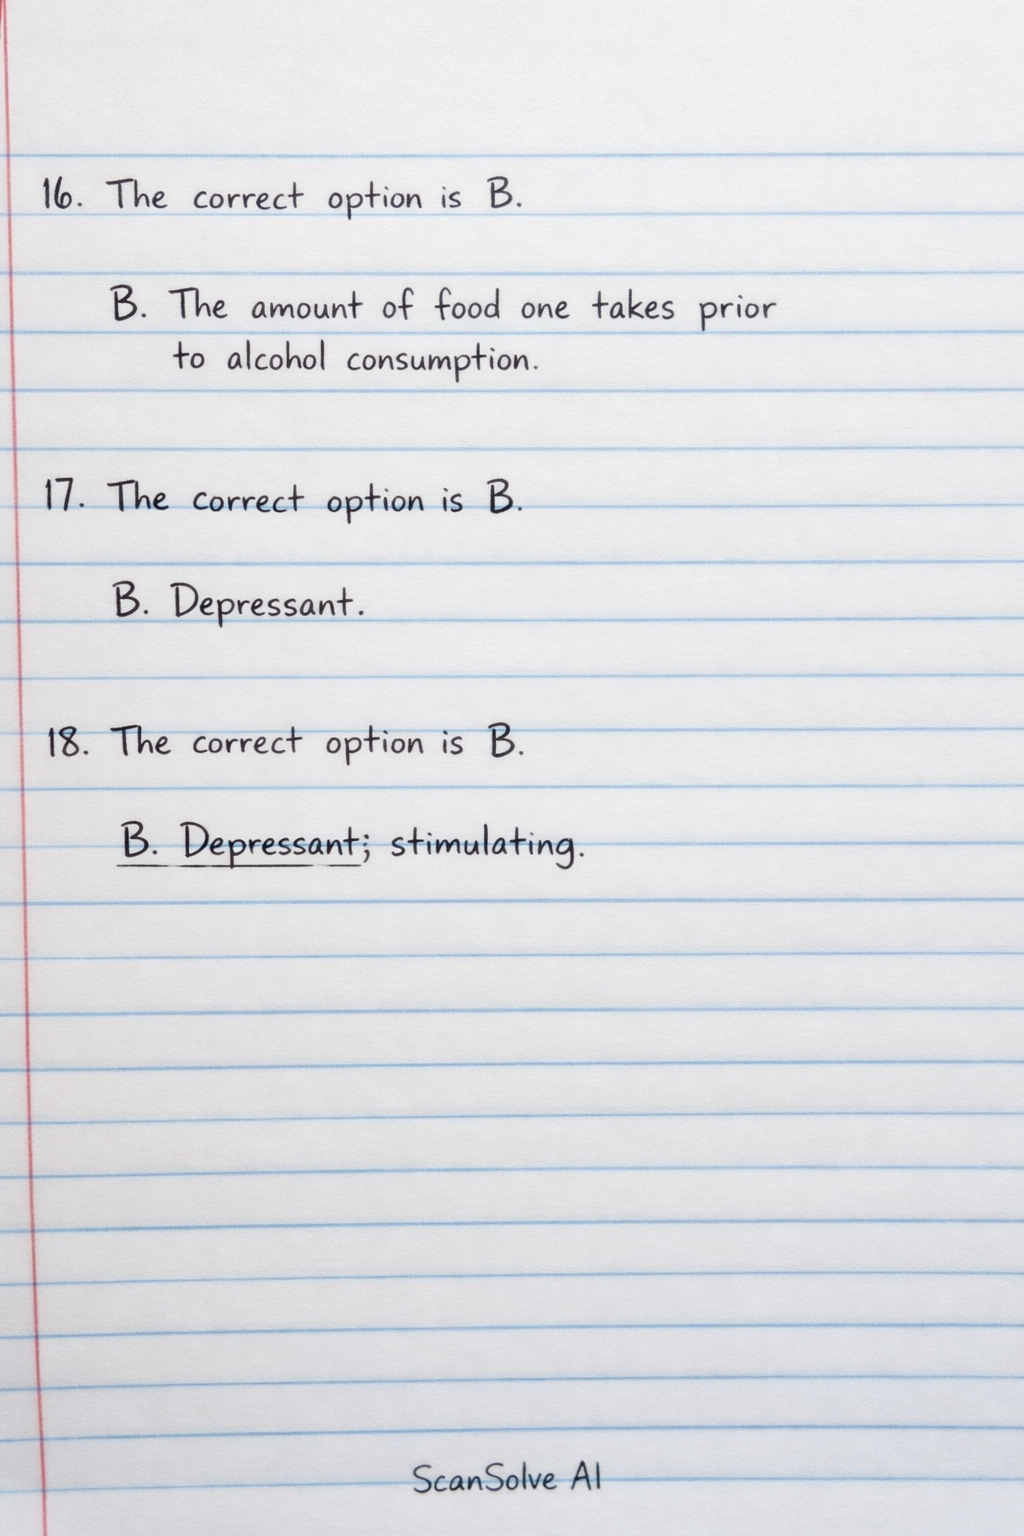 16. The correct option is B.
B. The amount of food one takes prior
to alcohol consumption.
17. The correct option is B.
B. Depressant.
18. The correct option is B.
B. Depressant; stimulating.
ScanSolve AI